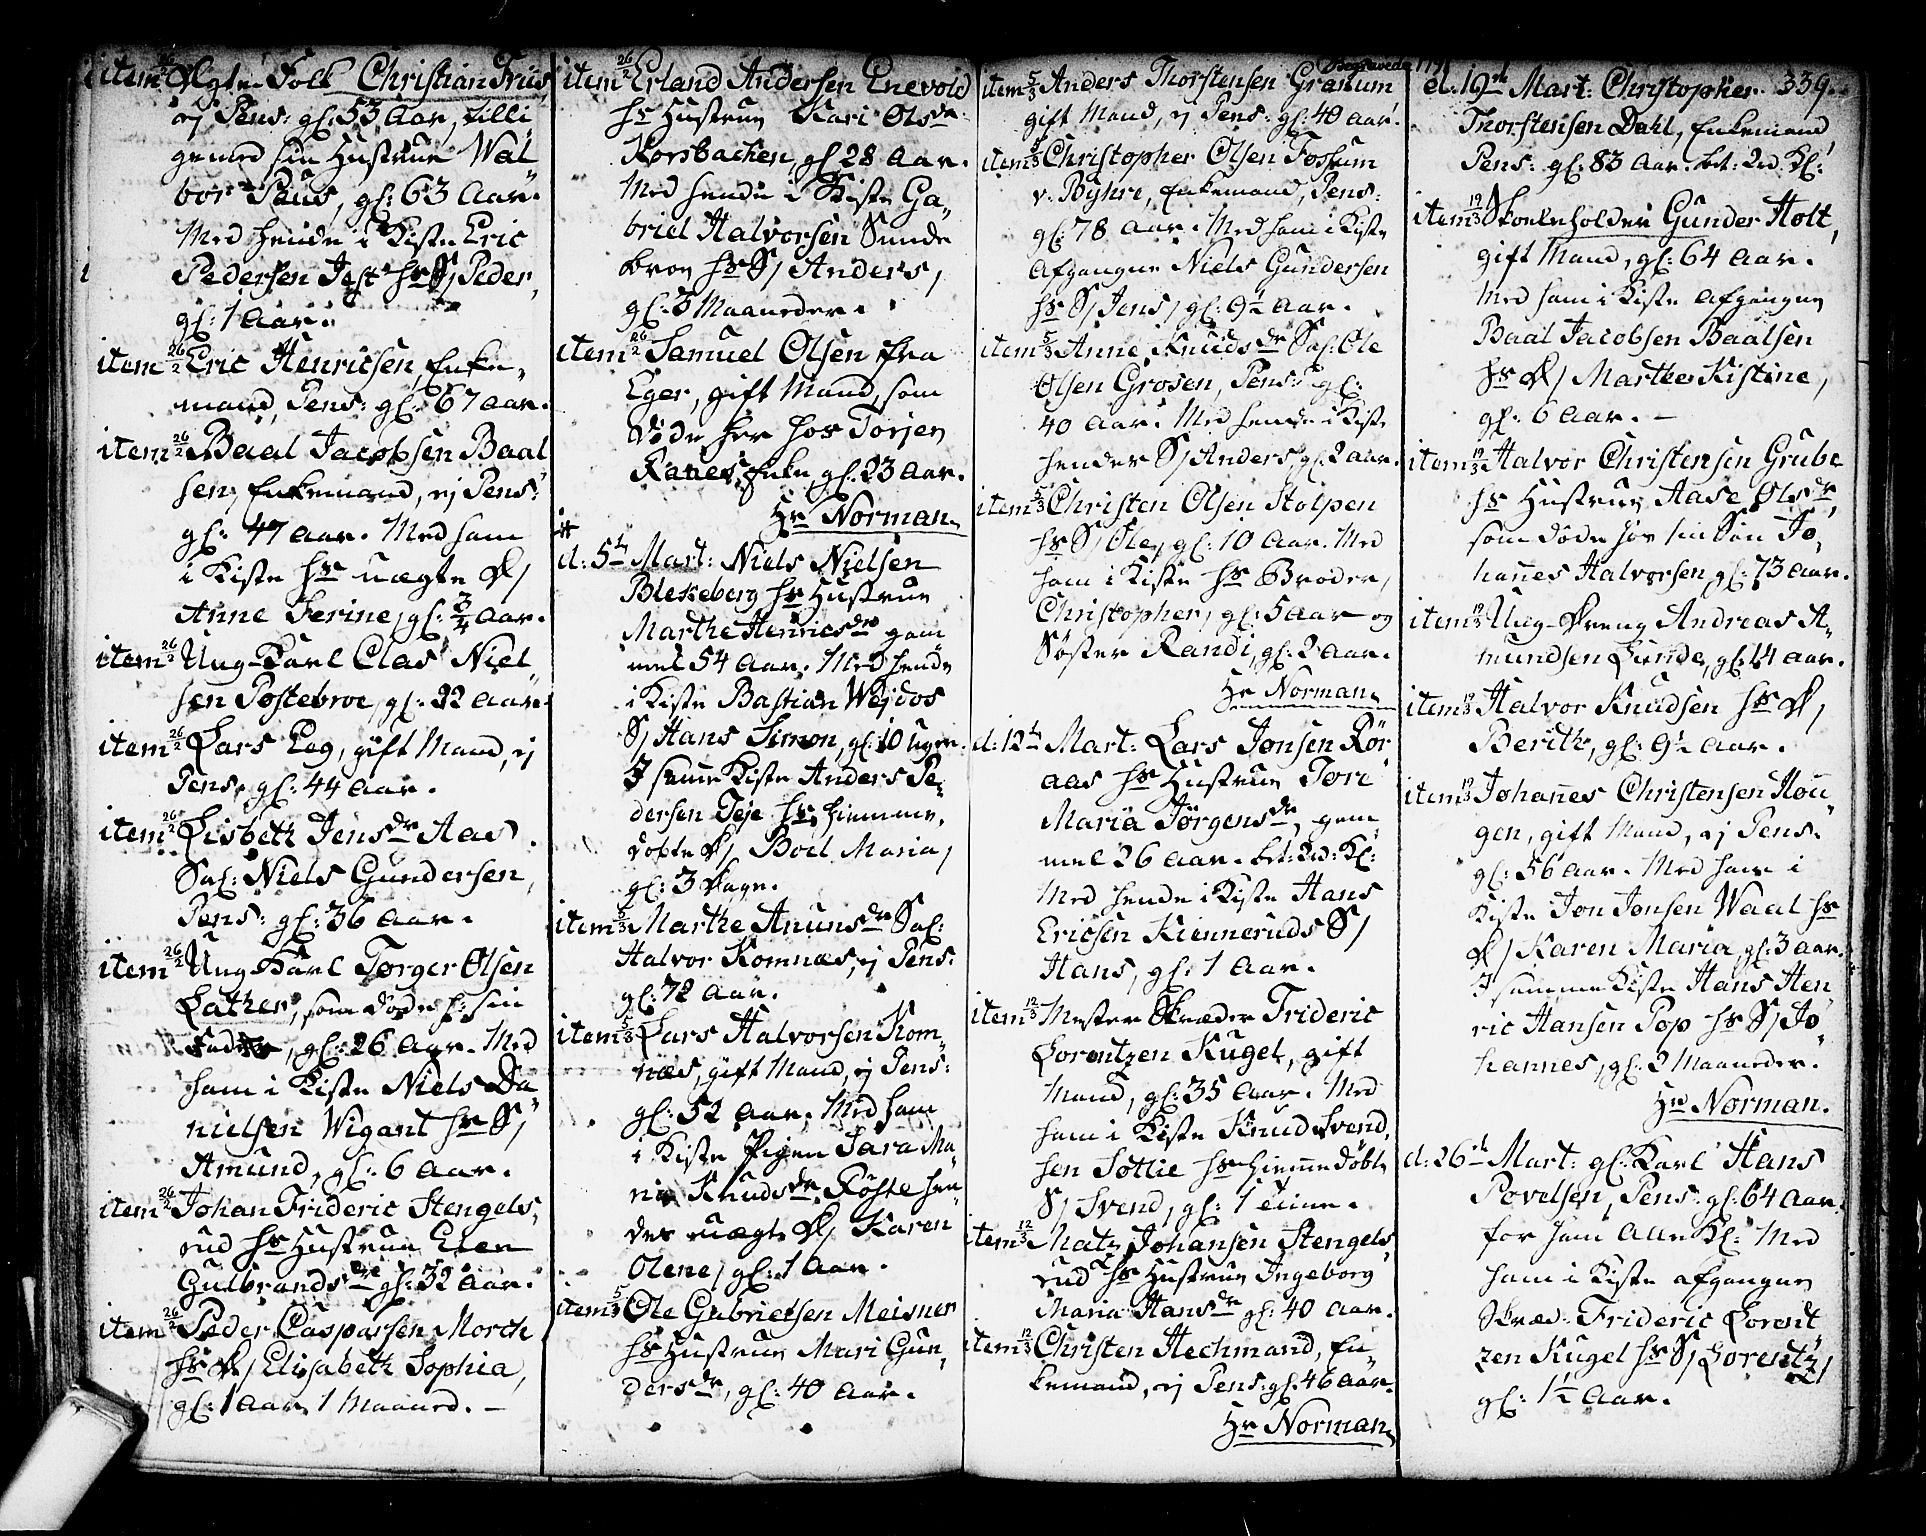 item 26/2 Ægte Folk Christian Friis,
ej Pens: gl: 53 Aar, tilli
gemed sin Hustrue Wal
bor Paus, gl: 63 Aar.
Med hende i Kiste Eric
Pedersen Jest hs S/ Peder,
gl: 1 Aar.
item 26/2 Eric Henricsen, Enke,
mand, Pens: gl: 67 Aar.
item 26/2 Baal Jacobsen Baal
sen, Enkemand, ej Pens:
gl: 47 Aar. Med ham
i Kiste hs uægte D/
Anne Serine, gl: 3/4 Aar.
item 26/2 Ung-Karl Clas Niel
sen Postebroe, gl: 22 Aar.
item 26/2 Lars Eeg, gift Mand, ej
Pens, gl: 44 Aar.
item 26/2 Lisbeth Jensdr Aas
Sal: Niels Gundersen,
Pens: gl: 36 Aar.
item 26/2 Ung Karl Torger Olsen
Lather, som døde h: sin
Fader, gl: 26 Aar. Med
ham i Kiste Niels Da
nielsen Wigant hs S/
Amund, gl: 6 Aar.
item 26/2 Johan Frideric Stengels,
rud hs Hustrue Elen
Gulbrandsdr gl: 32 Aar.
item 26/2 Peder Caspersen Morch
hs D/ Elisabeth Sophia,
gl: 1 Aar 1 Maaned. –
item 26/2 Erland Andersen Enevold
hs Hustrue Kari Olsdr
Korsbachen, gl 28 Aar.
Med hende i Kiste Ga,
briel Halvorsen Sunde
broe hs S/ Anders,
gl: 3 Maaneder.
item 26/2 Samuel Olsen fra
Eger, gift Mand, som
døde her hos Torjen
Ranes Enke gl: 23 Aar.
Hr Norman
d: 5te Mart: Niels Nielsen
Blekeberg hs Hustrue
Marthe Henricsdr gam
mel 54 Aar. Med hende
i Kiste Bastian Wejdos
S/ Hans Simon, gl: 10 Uger.
I samme Kiste Anders Pe,
dersen Teje hs hiemme,
døbte D/ Boel Maria,
gl: 3 Dage.
item 5/3 Marthe Anunsdr Sal:
Halvor Komnæs, ej Pens:
gl: 72 Aar.
item 5/3 Lars Halvorsen Kom,
næs, gift Mand, ej Pens:
gl: 52 Aar. Med ham
i Kiste Pigen Sara Ma,
rie Knudsdr Røste hen,
des uægte D/ Karen
Olene, gl: 1 Aar.
item 5/3 Ole Gabrielsen Meisner
hs Hustrue Mari Gun,
dersdr, gl: 40 Aar.
Begravede
item 5/3 Anders Thorstensen Granum
gift Mand, ej Pens: gl: 40 Aar.
item 5/3 Christopher Olsen Fossum
v. Byhre, Enkemand, Pens:
gl: 78 Aar. Med ham i Kiste
Afgangne Niels Gundersen
hs S/ Jens, gl: 9½ Aar.
item 5/3 Anne Knudsdr Sal. Ole
Olsen Grosen, Pens: gl:
40 Aar. Med hende i Kiste
hendes S/ Anders, gl: 2 Aar.
item 5/3 Christen Olsen Stolpen
hs S/ Ole, gl: 10 Aar. Med
ham i Kiste hs Broder,
Christopher, gl: 5 Aar og
Søster Randi, gl: 2 Aar.
Hr Norman
d: 12te Mart: Lars Jonsen Rør
aas hs Hustrue Tore
Maria Jørgensdr, gam
mel 26 Aar. bet: 2de Kl:
Med hende i Kiste Hans
Ericsen Kienneruds S/
Hans, gl: 1 Aar.
item 12/3 Mester Skræder Frideric
Lorentzen Kugel, gift
Mand, gl: 35 Aar. Med
ham i Kiste Knud Svend,
sen Sottie hs hiemmedøbt
S/ Svend, gl: 1 Time.
item 12/3 Matz Johansen Stengels,
rud hs Hustrue Ingeborg
Maria Hansdr gl: 40 Aar.
item 12/3 Christen Hechmand, En,
kemand, ej Pens: gl. 46 Aar.
Hr Norman
d: 19de Mart: Christopher 339.
Thorstensen Dahl, Enkemand
Pens: gl: 83 Aar. bet: 2de Kl:
item 19/3 Skoeleholder Gunder Holt,
gift Mand, gl: 64 Aar.
Med ham i Kiste afgangne
Baal Jacobsen Baalsen
hs D/ Marthe Kistine,
gl: 6 Aar. –
item 19/3 Halvor Christensen Grube
hs Hustrue Aase Olsdr,
som døde hos sin Søn Jo,
hañes Halvorsen, gl: 73 Aar.
item 19/3 Ung-Dreng Andreas A,
mundsen Lunde, gl: 14 Aar.
item 19/3 Halvor Knudsen hs D/
Berith, gl: 9½ Aar.
item 19/3 Johañes Christensen Hou,
gen, gift Mand, ej Pens:
gl: 56 Aar. Med ham i
Kiste Jon Jonsen Waal hs
D/ Karen Maria, gl: 3 Aar.
I samme Kiste Hans Hen
ric Hansen Pop hs S/ Jo,
hannes, gl: 2 Maaneder.
Hr Norman.
d: 26de Mart: gl: Karl Hans
Povelsen, Pens: gl: 64 Aar
for ham Alle Kl: Med
ham i Kiste afgangne
Skræd: Frideric Lorent
zen Kugel hs S/ Lorentz/
gl: 1½ Aar.